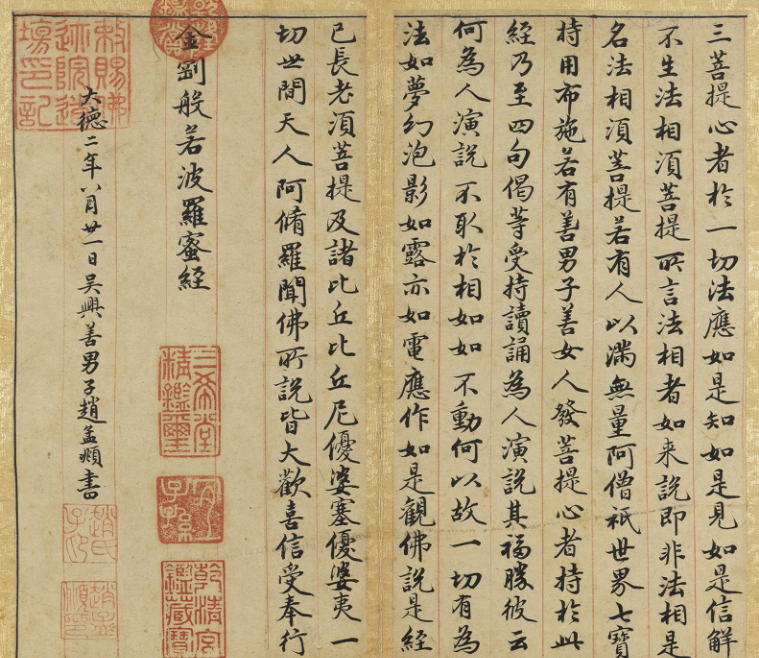 三菩提心者於一切法應如是知如是見如是信解
不生法相須菩提所言法相者如来說即非法相是
名法相須菩提若有人以滿無量阿僧祇世界七寶
持用布施若有善男子善女人發菩提心者持於此
經乃至四句偈等受持讀誦為人演說其福勝彼云
何為人演說不取於相如如不動何以故一切有為
法如夢幻泡影如露亦如電應作如是觀佛說是經
已長老須菩提及諸比丘比丘尼優婆塞優婆夷一
切世間天人阿脩羅聞佛所說皆大歡喜信受奉行
金剛般若波羅蜜經
三希堂精鑑璽
宜子孫
乾清宮鑑藏寶
大德二年八月廿一日吳興善男子趙孟頫書
趙氏子印